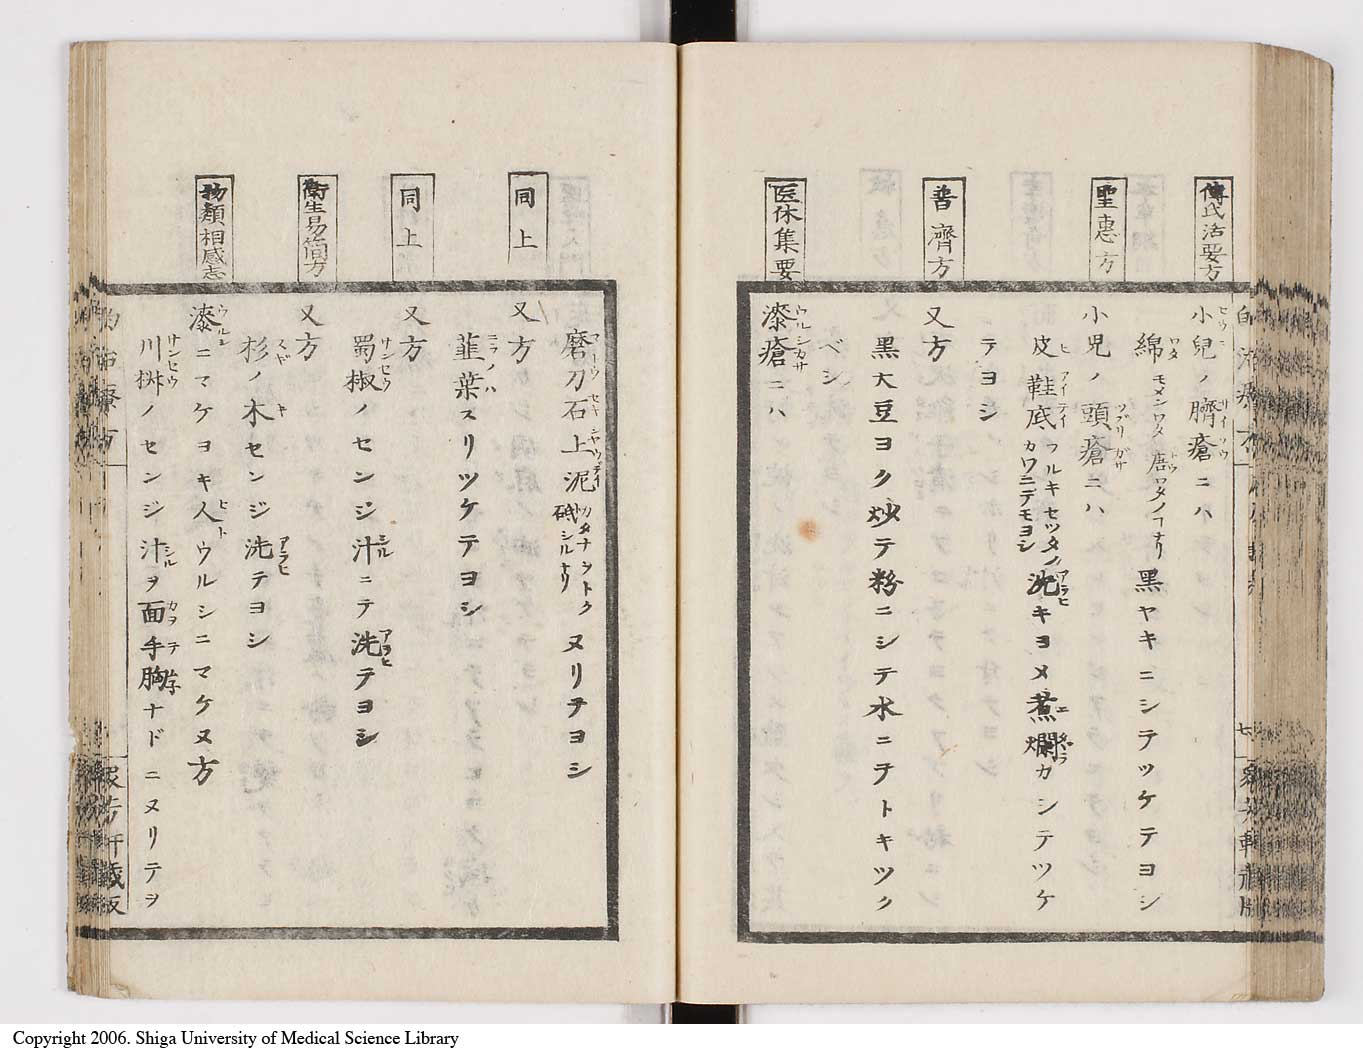 傅氏活要方
小兒ノ臍瘡ニハ
綿 モメンワタ唐ワタノコナリ 黒ヤキニシテツケテヨシ
聖惠方
小児ノ頭瘡ニハ
皮鞋底 フルキセツタノカワニテモヨシ 洗キヨメ煮爛カシテツケ
テヨシ
普濟方
又方
黒大豆ヨク炒テ粉ニシテ水ニテトキツク
ベシ
医休集要
漆瘡ニハ
磨刀石上泥 カタナヲトク砥シルナリ ヌリテヨシ
同上
又方
韮葉スリツケテヨシ
同上
又方
蜀椒ノセンジ汁ニテ洗テヨシ
衛生易簡方
又方
杉ノ木センジ洗テヨシ
物類相感志
漆ニマケヨキ人ウルシニマケヌ方
川椒ノセンジ汁ヲ面手胸ナドニヌリテヲ
Copyright 2006. Shiga University of Medical Science Library